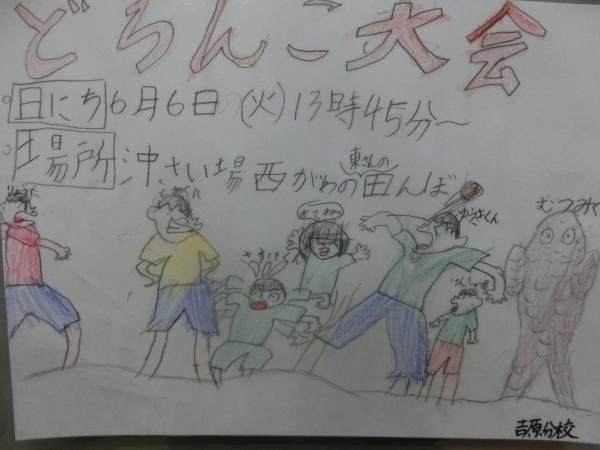 どろんこ大会
。日にち 6月6日(火)13時45分～
。場所 沖さい場西がわの東さんの田んぼ
さすけくん
きてねー
ゆうきくん
むつみくん
吉原分校